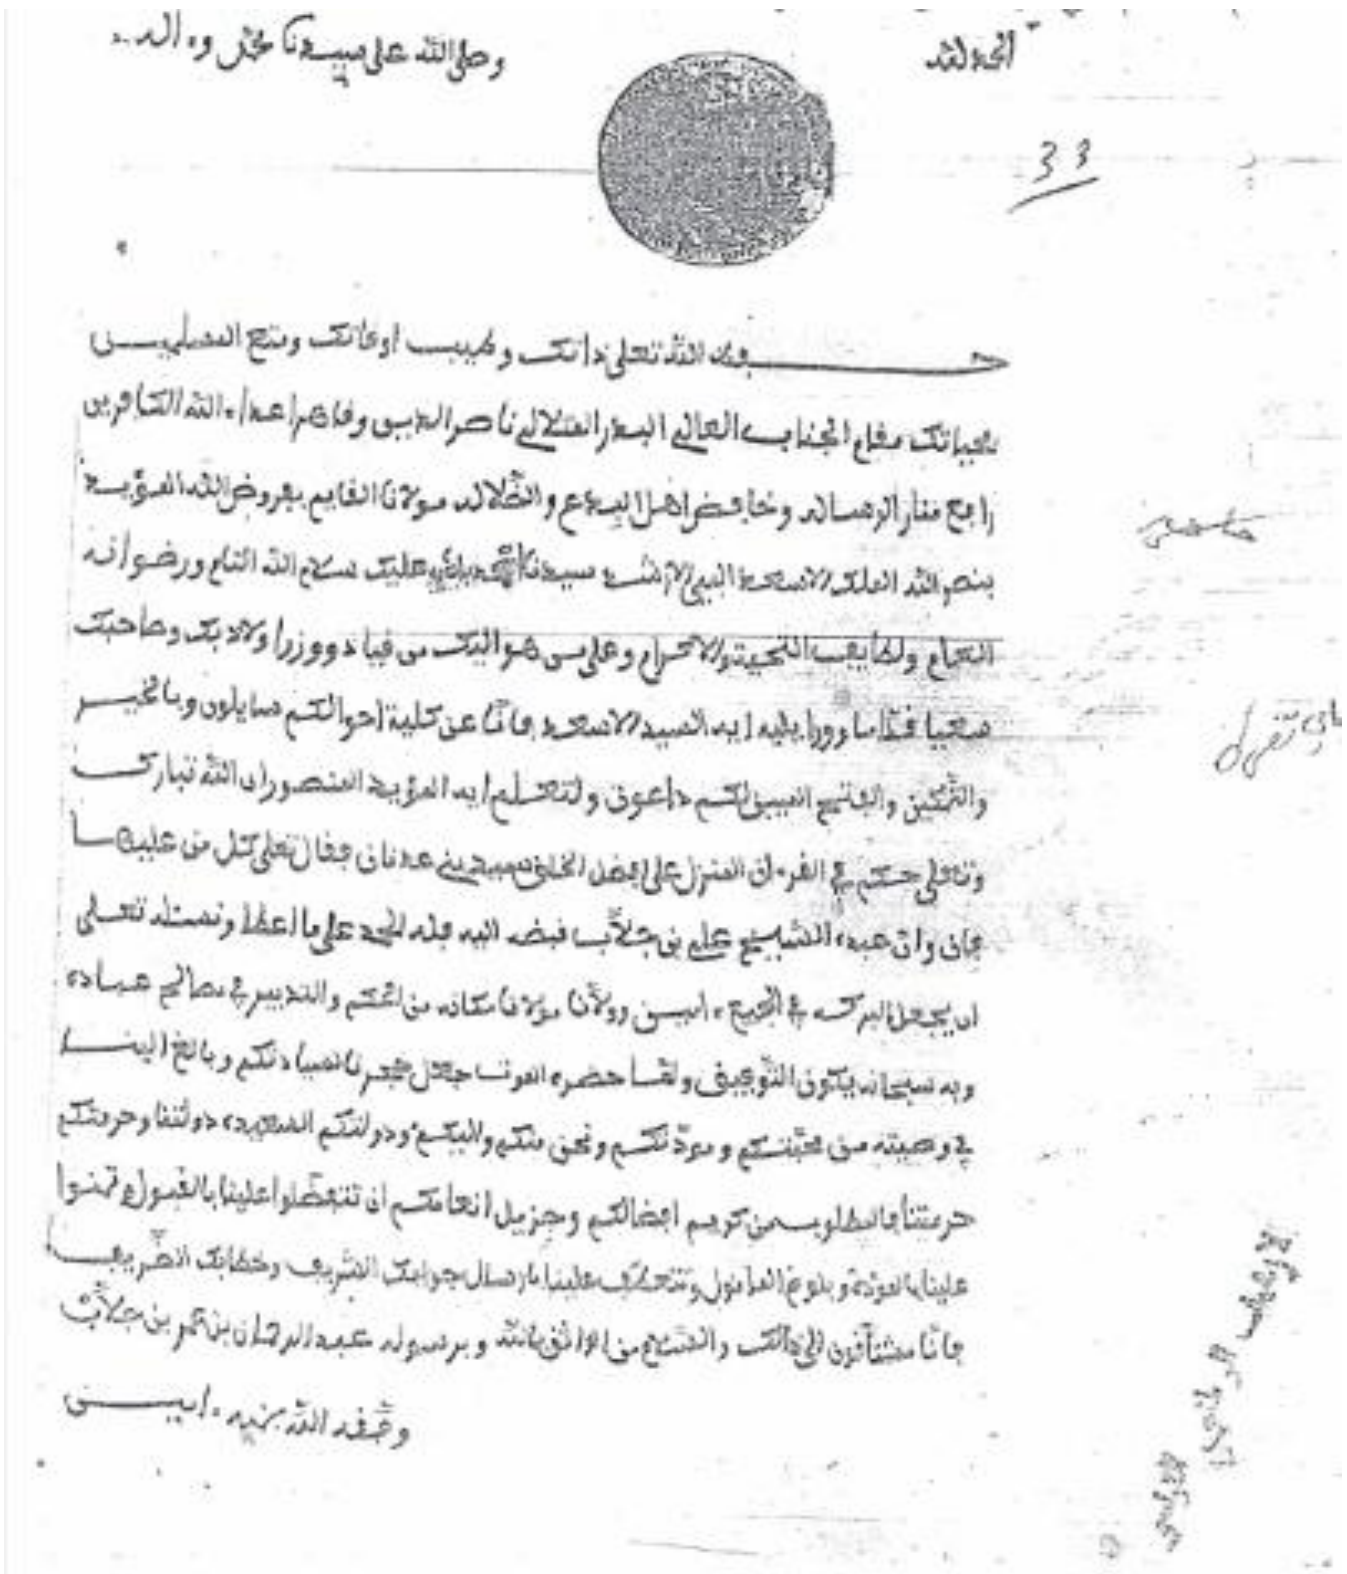 الحمد لله
وصلى الله على سيدنا محمد وءاله
33
حفظ الله تعلى ذاتك وطيب اوقاتك ومتع المسلمين
بحياتك مقام الجناب العالي البدر المتلالي ناصر الدين وقاهر اعداء الله الكافرين
رافع منار الرسالة وخافض اهل البدع والظلالة مولانا القايم بفروض الله المؤيد
بنصر الله الملك الاسعد النبيل الارشد سيدنا عليك سلام الله التام ورضوانه
العام ولطايف التحية والاكرام وعلى من هو اليك من قياد ووزرا ولادبك وصاحبك
اما وورا يليه ايه السيد الاسعد فانا عن كلية احوالكم سايلون وبالخير
والتمكين والفتح المبين لكم داعون ولتعلم ايه المؤيد المنصور ان الله تبارك
وتعلى حكم في القرءان المنزل على افضل الخلق سيد بني عدنان فقال تعلى كل من عليها
فان وان عبده الشيخ علي بن جلاب قبضه اليه فله الحمد على ما اعطا ونسئله تعلى
ان يجعل البركة في الجميع ءامين وولانا مولانا مكانه من الحكم والتدبير في مصالح عباده
وبه سبحانه يكون التوفيق ولما حضره الموت جعل حجرنا لسيادتكم وبالغ الينا
في وصيته من محبتكم ومودتكم ونحن منكم واليكم ودولتكم السعيدة دولتنا وحرمتكم
حرمتنا فالمطلوب من كريم افضالكم وجزيل انعامكم ان تتفضلوا علينا بالقبول وتمنوا
علينا بالمودة وبلوغ المامول وتتعطف علينا بارسال جوابك الشريف وخطابك الظريف
فانا مشتاقون الى ذالك والسلام من الواثق بالله وبرسوله عبد الرحمان بن عمر بن جلاب
وفقه الله بمنه ءامين